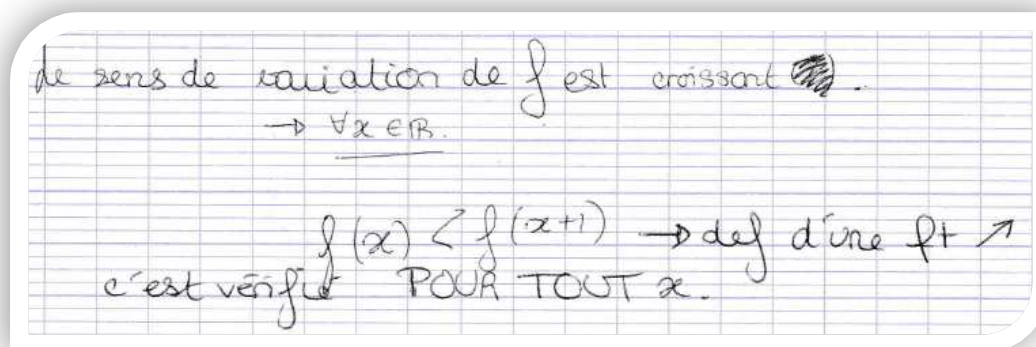 le sens de variation de f est croissant .
→ ∀x ∈ ℝ.
f(x) < f(x+1) → def d'une ft ↗
c'est vérifié POUR TOUT x.